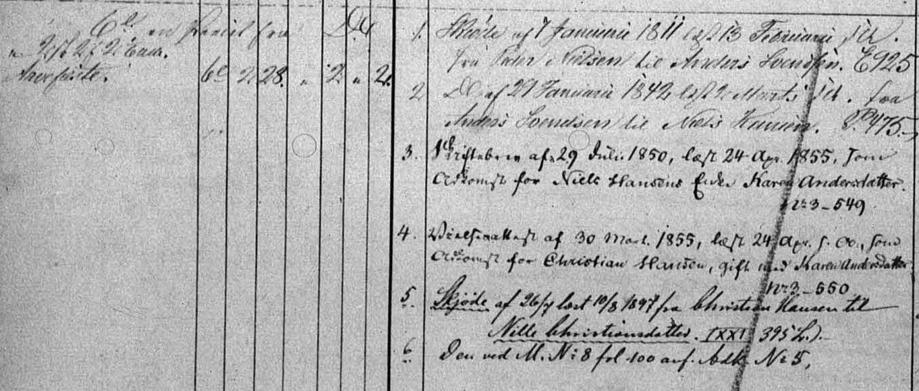 6 c en Parcel fra Do
6 c 2. 28. " 2 " 2.
1. Skjøde af 7 Januarii 1811 læst 13 Februarii s.A.
fra Peder Nielsen til Anders Svendsen. E 925
2. Do af 29 Januarii 1842 læst 2 Marts s.A. fra
Anders Svendsen til Niels Hansen. 475.
3. Skiftebrev af 29 Juli 1850, læst 24 Apr. 1855, som
Adkomst for Niels Hansens Enke Karen Andersdatter.
No 3 – 549
4. Vielsesattest af 30 Mart. 1855, læst 24 Apr. s. A., som
Adkomst for Christian Hansen, gift med Karen Andersdatter
No 3 – 550
5. Skjøde af 26/7 læst 10/8 1897 fra Christian Hansen til
Nille Christiansdatter. XXI 395
6. Den ved M. No 8 fol 100 anf. Adk. No 5.